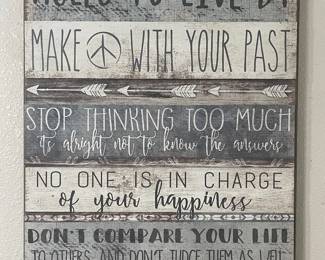 RULES TO LIVE BY
MAKE ☮ WITH YOUR PAST
STOP THINKING TOO MUCH
it's alright not to know the answers
NO ONE IS IN CHARGE
of your happiness
DON'T COMPARE YOUR LIFE
TO OTHERS AND DON'T JUDGE THEM AS WELL